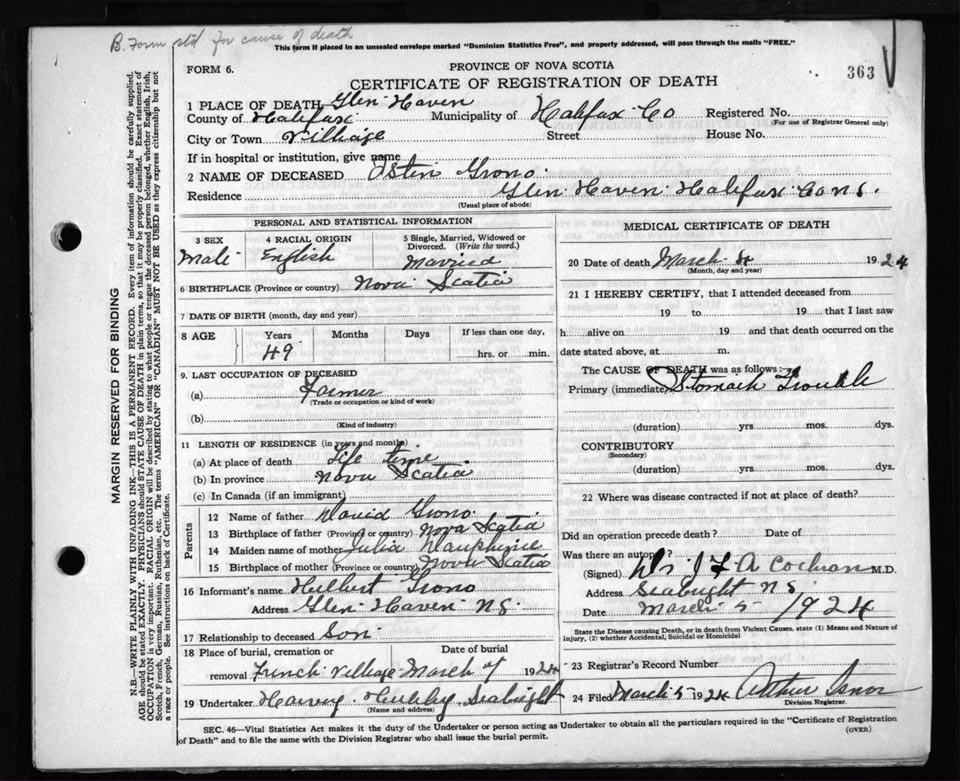 B. Form std for cause of death
This form if placed in an unsealed envelope marked "Dominion Statistics Free", and properly addressed, will pass through the mails "FREE."
FORM 6.
PROVINCE OF NOVA SCOTIA
363
CERTIFICATE OF REGISTRATION OF DEATH
1 PLACE OF DEATH, Glen Haven
County of Halifax Municipality of Halifax Co Registered No.
(For use of Registrar General only)
City or Town Village Street House No.
If in hospital or institution, give name
2 NAME OF DECEASED Grono
Residence Glen Haven Halifax Co N.S.
(Usual place of abode)
PERSONAL AND STATISTICAL INFORMATION
3 SEX 4 RACIAL ORIGIN 5 Single, Married, Widowed or Divorced. (Write the word.)
Male English Married
6 BIRTHPLACE (Province or country) Nova Scotia
7 DATE OF BIRTH (month, day and year)
8 AGE Years Months Days If less than one day,
49 hrs. or min.
9. LAST OCCUPATION OF DECEASED
(a) Farmer
(Trade or occupation or kind of work)
(b)
(Kind of industry)
11 LENGTH OF RESIDENCE (in years and months)
(a) At place of death Life time
(b) In province Nova Scotia
(c) In Canada (if an immigrant)
Parents
12 Name of father David Grono
13 Birthplace of father (Province or country) Nova Scotia
14 Maiden name of mother Julia Dauphinee
15 Birthplace of mother (Province or country) Nova Scotia
16 Informant's name Grono
Address Glen Haven NS
17 Relationship to deceased Son
18 Place of burial, cremation or removal Date of burial
French Village March 7 1924
19 Undertaker Harvey Hubley Seabright
(Name and address)
MEDICAL CERTIFICATE OF DEATH
20 Date of death March 4 1924
(Month, day and year)
21 I HEREBY CERTIFY, that I attended deceased from
19 to 19 that I last saw
h alive on 19 and that death occurred on the
date stated above, at m.
The CAUSE OF DEATH was as follows:
Primary (immediate) Stomach Trouble
(duration) yrs. mos. dys.
CONTRIBUTORY
(Secondary)
(duration) yrs. mos. dys.
22 Where was disease contracted if not at place of death?
Did an operation precede death? Date of
Was there an autopsy?
(Signed) Dr J F A Cochran M.D.
Address Seabright NS
Date March 5 1924
State the Disease causing Death, or in death from Violent Causes, state (1) Means and Nature of
injury, (2) whether Accidental, Suicidal or Homicidal
23 Registrar's Record Number
24 Filed March 5 1924 Arthur
Division Registrar.
SEC. 46—Vital Statistics Act makes it the duty of the Undertaker or person acting as Undertaker to obtain all the particulars required in the "Certificate of Registration
of Death" and to file the same with the Division Registrar who shall issue the burial permit.
(OVER)
MARGIN RESERVED FOR BINDING
N.B.—WRITE PLAINLY WITH UNFADING INK—THIS IS A PERMANENT RECORD. Every item of information should be carefully supplied.
AGE should be stated EXACTLY. PHYSICIANS should STATE CAUSE OF DEATH in plain terms, so that it may be properly classified. Exact statement of
OCCUPATION is very important. RACIAL ORIGIN will be described by stating to what people or tongue the deceased person belonged, whether English, Irish,
Scotch, French, German, Russian, Ruthenian, etc. The terms "AMERICAN" OR "CANADIAN" MUST NOT BE USED as they express citizenship but not
a race or people. See instructions on back of Certificate.